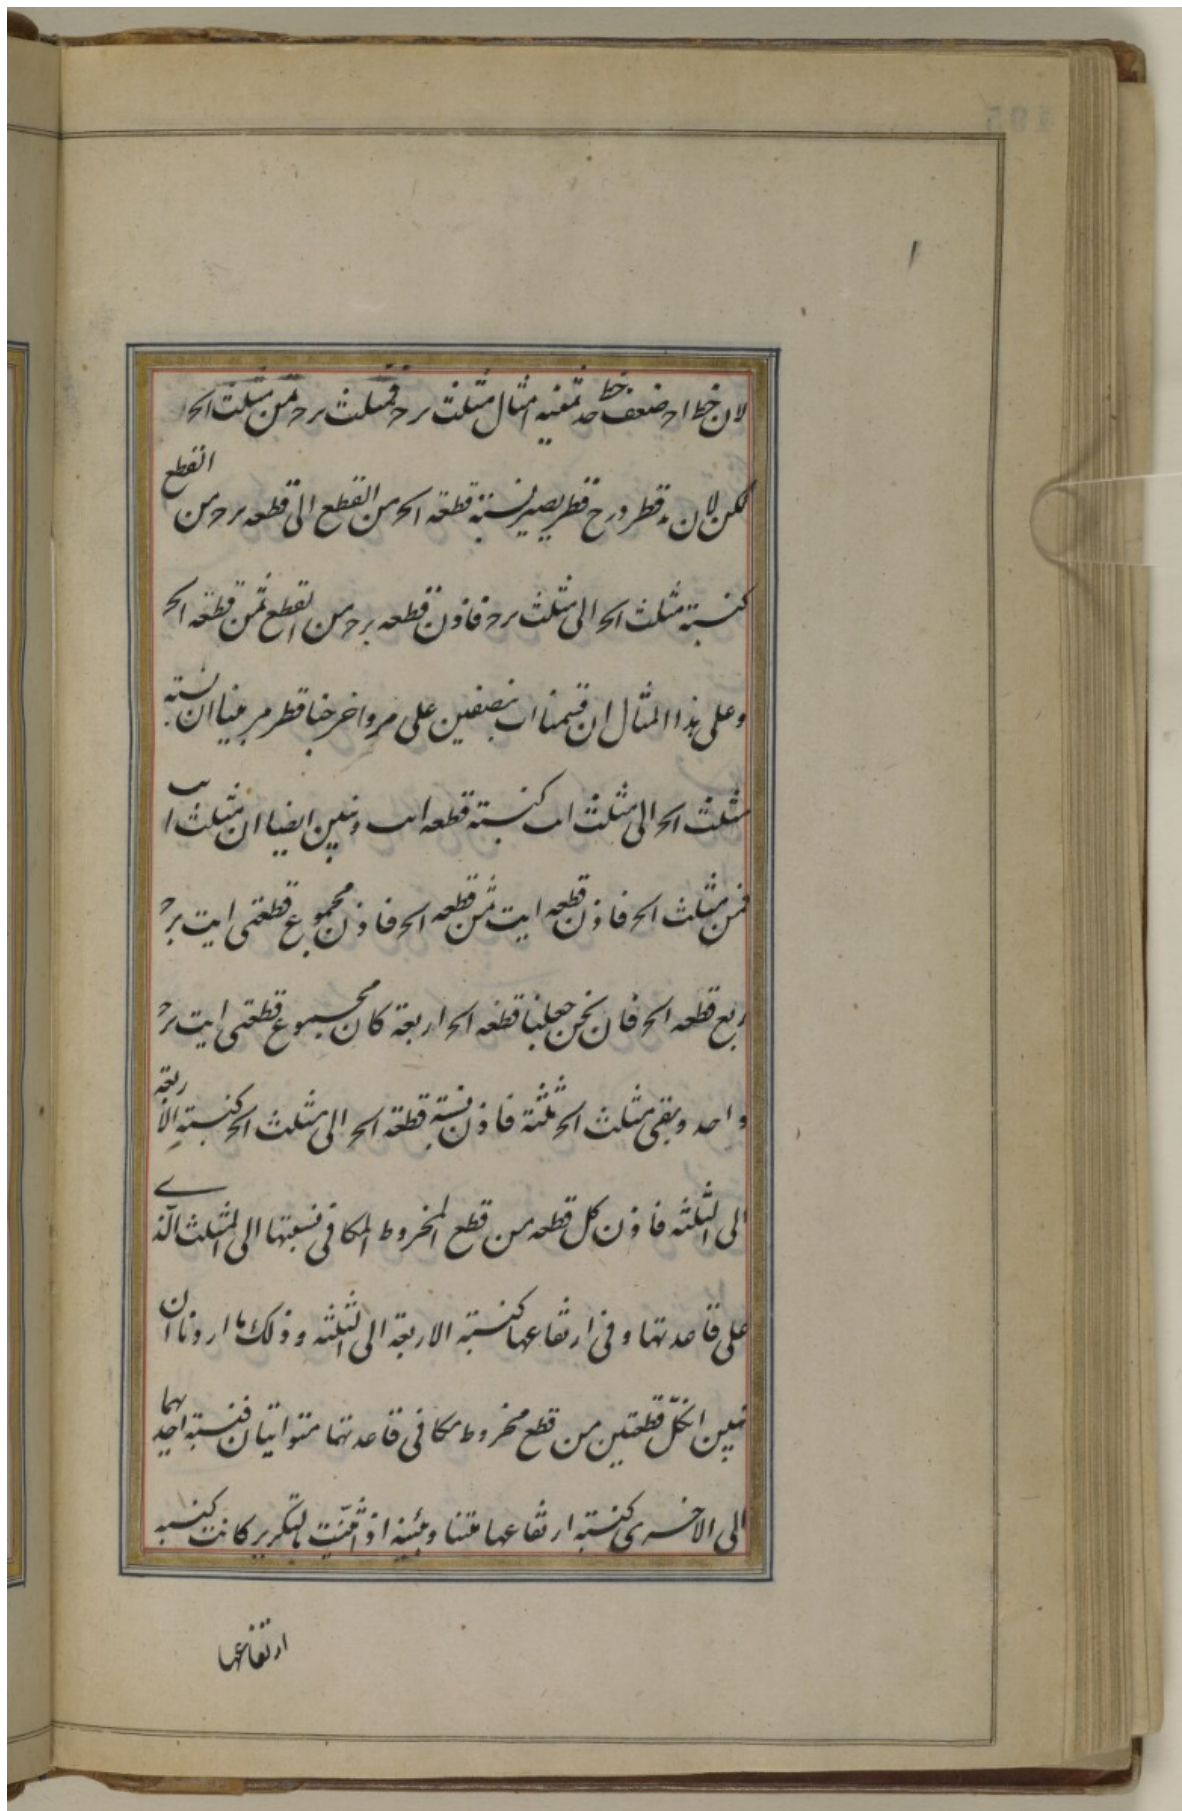 لان خط اح ضعف خط حد ثمنیه امثال مثلث ںرح فمثلث ںرح ثمن مثلث احٮ
لکن لان ه قطر ورح قطر یصیر نسبته قطعة احٮ من القطع الی قطعه ںرح من القطع
کنسبته مثلث احٮ الی مثلث ںرح فاذن قطعه ںرح من القطع ثمن قطعه احٮ
وعلی هذا المثال ان قسمنا اب بنصفین علی م واخرجنا قطر م بینا ان نسبته
مثلث احٮ الی مثلث اب کنسبته قطعه اب ونبین ایضا ان مثلث ا ب
ثمن مثلث احٮ فاذن قطعه ایت ثمن قطعه احٮ فاذن مجموع قطعتی ایت ںرح
ربع قطعه احٮ فان نحن جعلنا قطعه احٮ اربعة کان مجموع قطعتی ایت ںرح
واحد ویبقی مثلث احٮ ثلثة فاذن نسبته قطعة احٮ الی مثلث احٮ کنسبته الاربعة
الی الثلثه فاذن کل قطعه من قطع المخروط المکافی فنسبتها الی المثلث الذے
علی قاعدتها وفی ارتفاعها کنسبته الاربعة الی الثلثه وذلک ما اردنا ان
نبین ان کل قطعتین من قطع مخروط مکافی قاعدتهما متواتیتان فنسبته احدیهما
الی الاخری کنسبته ارتفاعها مثناة مبینه اذ اثمنیت بالتکریر کانت کنسبه
ارتفاعها